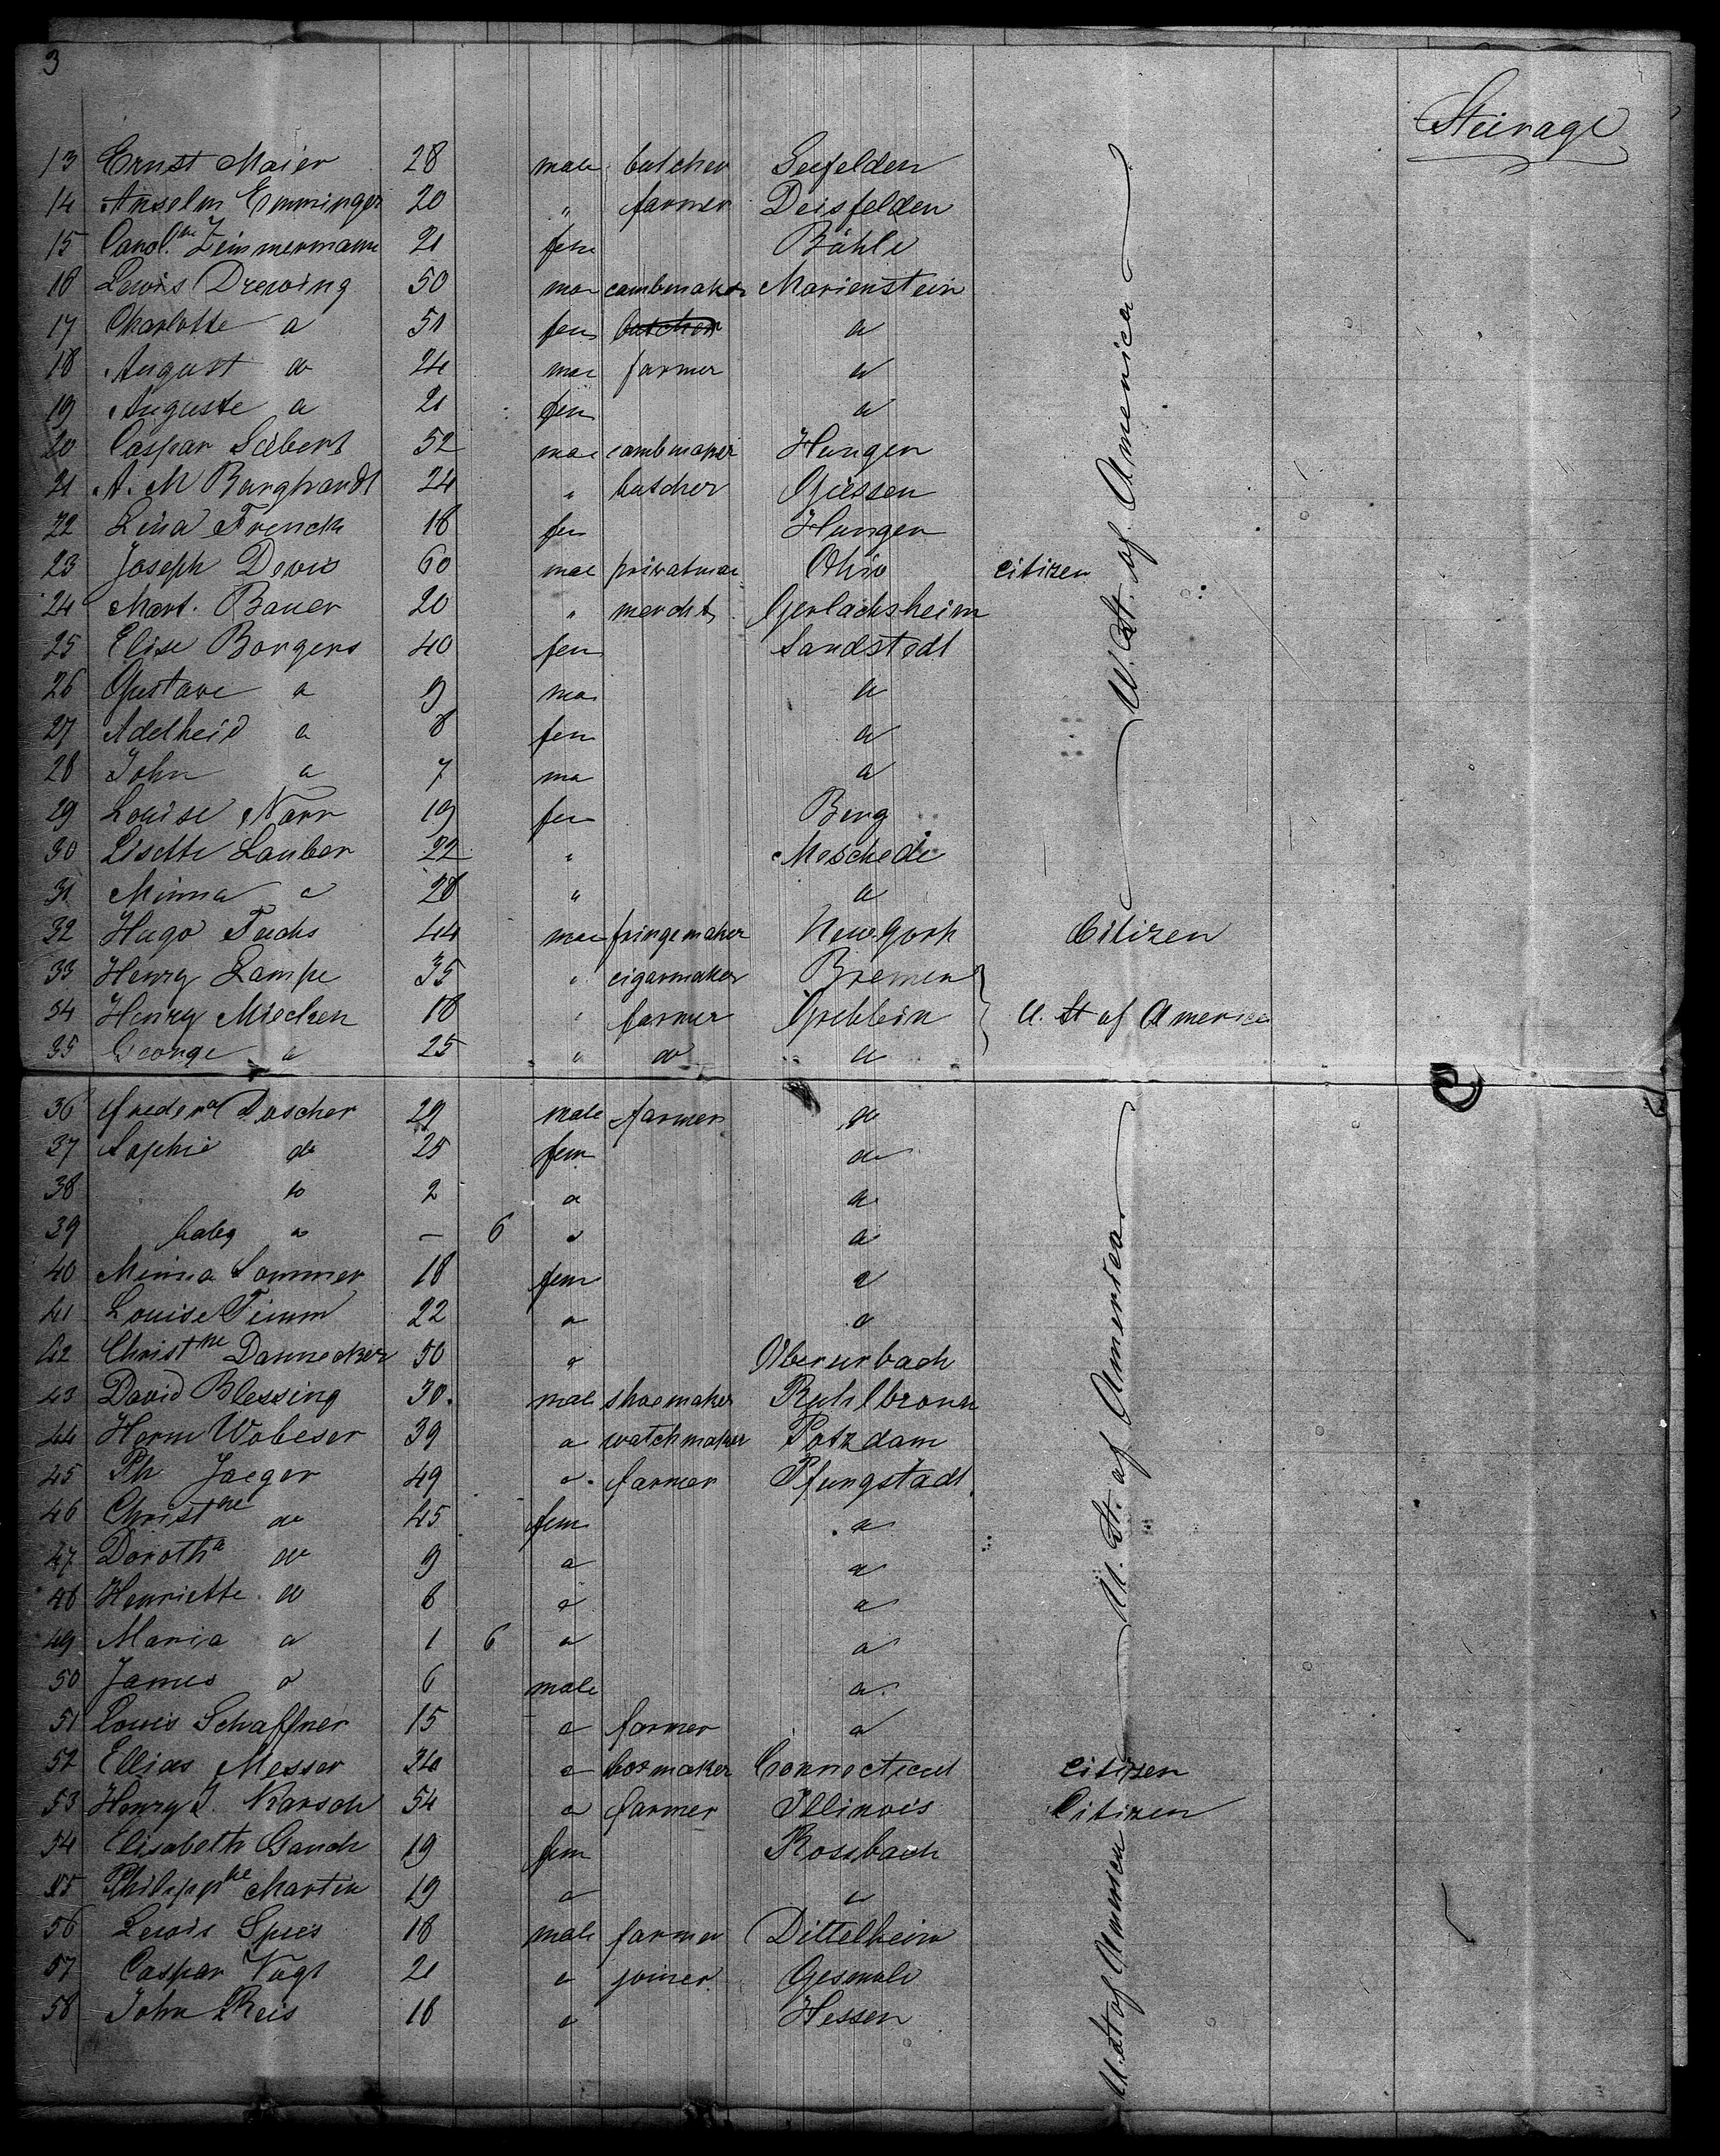 3
Steerage
13 Ernst Maier 28 male butcher Seefelden
14 Anselm Emminger 20 " farmer Deisfelden
15 Carol.ne Zimmermann 21 fem Bühle
16 Lewis Drewing 50 mae combmaker Marienstein
17 Charlotte a 51 fem butcher a
18 August do 24 mae farmer a
19 Auguste a 21 fem a
20 Caspar Seibert 52 mae combmaker Hungen
21 A. M Burghardt 24 " butcher Giessen
22 Lina Frenck 18 fem Hungen
23 Joseph Devis 60 mae privatmae Ohio citizen
24 Mart. Bauer 20 " mercht Gerlachsheim
25 Elise Borgers 40 fem Sandstedt
26 Gustave a 9 ma a
27 Adelheid a 8 fem a
28 John a 7 ma a
29 Louise Narr 19 fem Berg
30 Lisette Lauber 22 " Meschede
31 Minna a 28 " a
U. St. of America
32 Hugo Fuchs 44 mae fringemaker New York Citizen
33 Henry Lampe 35 " cigarmaker Bremen
34 Henry Miecken 18 " farmer U. St of America
35 George a 25 " do a
36 Feeder Doscher 29 male farmer do
37 Sophie do 25 fem do
38 do 2 a a
39 baby a – 6 a a
40 Minna Sommer 18 fem a
41 Louise Timm 22 a a
42 Christne Dannecker 50 a Oberurbach
43 David Blessing 30. male shoemaker Buhlbronn
44 Herm Wobeser 39 a watchmaker Potzdam
45 Ph Jaeger 49 a farmer Pfungstadt
46 Christne do 45 fem a
47 Dorotha do 9 a a
48 Henriette do 8 a a
49 Maria a 1 6 a a
50 James a 6 male a
51 Lewis Schaffner 15 a farmer a
U. St. of America
52 Ellias Messer 34 a boxmaker Connecticut citizen
53 Henry J. Karsch 54 a farmer Illinois Citizen
54 Elisabeth Gauch 19 fem Rossbach
55 Philippne Martin 19 a a
56 Lewis Spies 18 male farmer Dittelheim
57 Caspar Vogt 21 a joiner Gesmold
58 John Reis 18 a Hessen
U. St of America